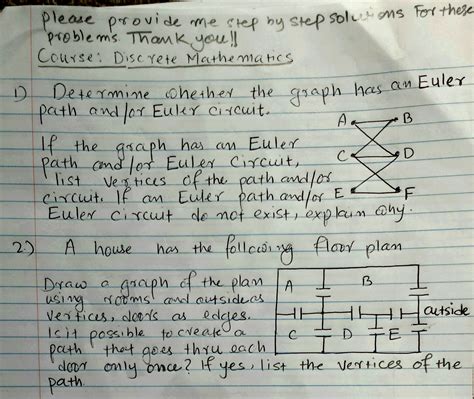 please provide me step by step solutions for these
problems. Thank you!!
Course: Discrete Mathematics
1) Determine whether the graph has an Euler
path and/or Euler circuit.
A B
If the graph has an Euler
path and/or Euler circuit,
C D
list vertices of the path and/or
circuit. If an Euler path and/or E F
Euler circuit do not exist, explain why.
2) A house has the following floor plan
Draw a graph of the plan
A B
using rooms and outside as
vertices, doors as edges.
outside
Is it possible to create a
C D E
path that goes thru each
door only once? If yes, list the vertices of the
path.